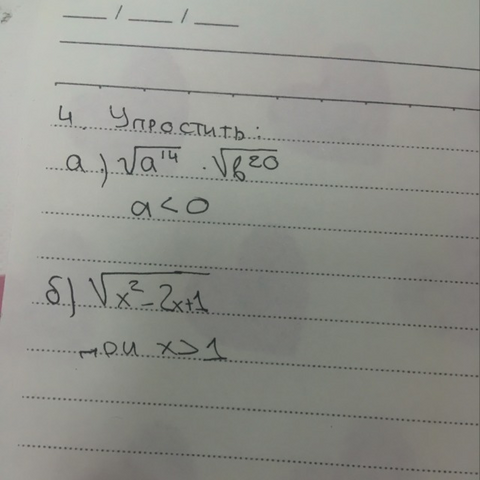 __ / __ / __
4. Упростить:
а.) √a¹⁴ · √b²⁰
a < 0
б) √x² - 2x + 1
при x > 1